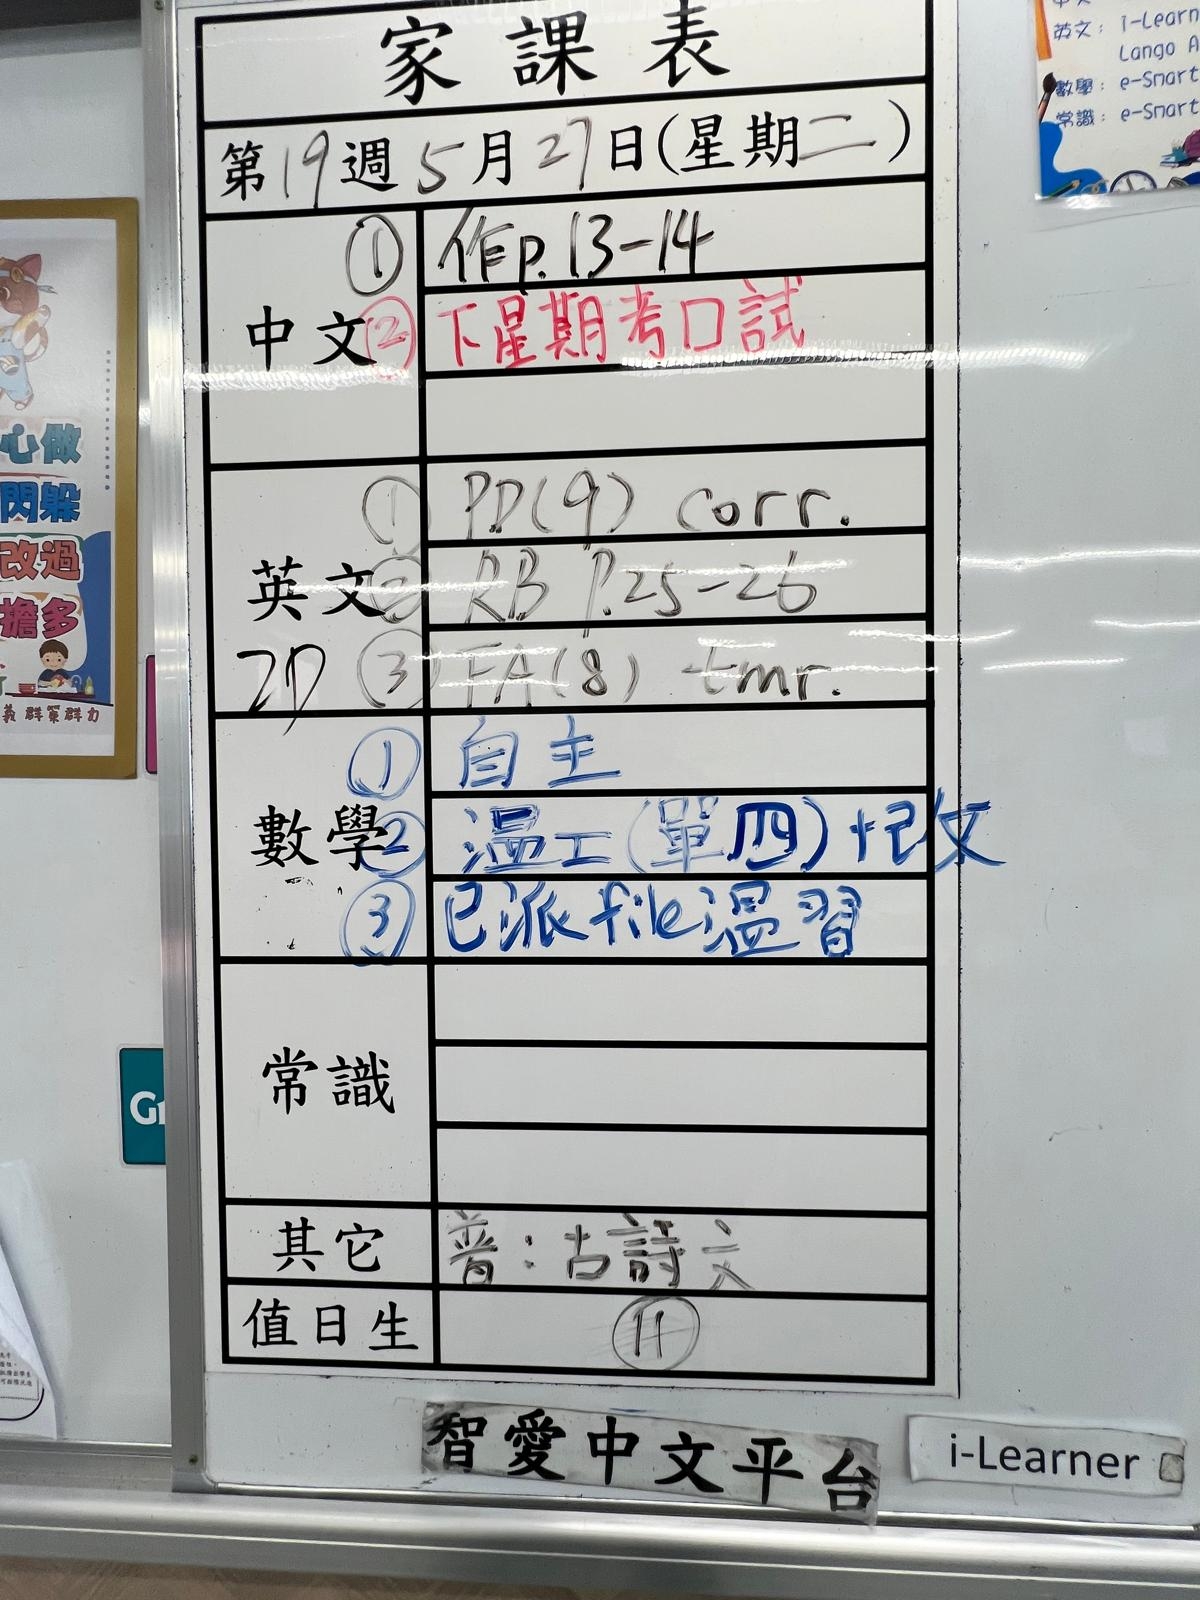 家課表
第19週5月27日(星期二)
中文
① 作p.13-14
② 下星期考口試
英文
2D
① PD(9) corr.
② RB P.25-26
③ FA(8) tmr.
數學
① 自主
② 温工(單四)忟改
③ 已派file温習
常識
其它
普:古詩文
值日生
11
智愛中文平台
i-Learner
英文: i-Learn
Lango A
數學: e-Smart
常識: e-Smart
心做
閃躲
改過
擔多
義群策群力